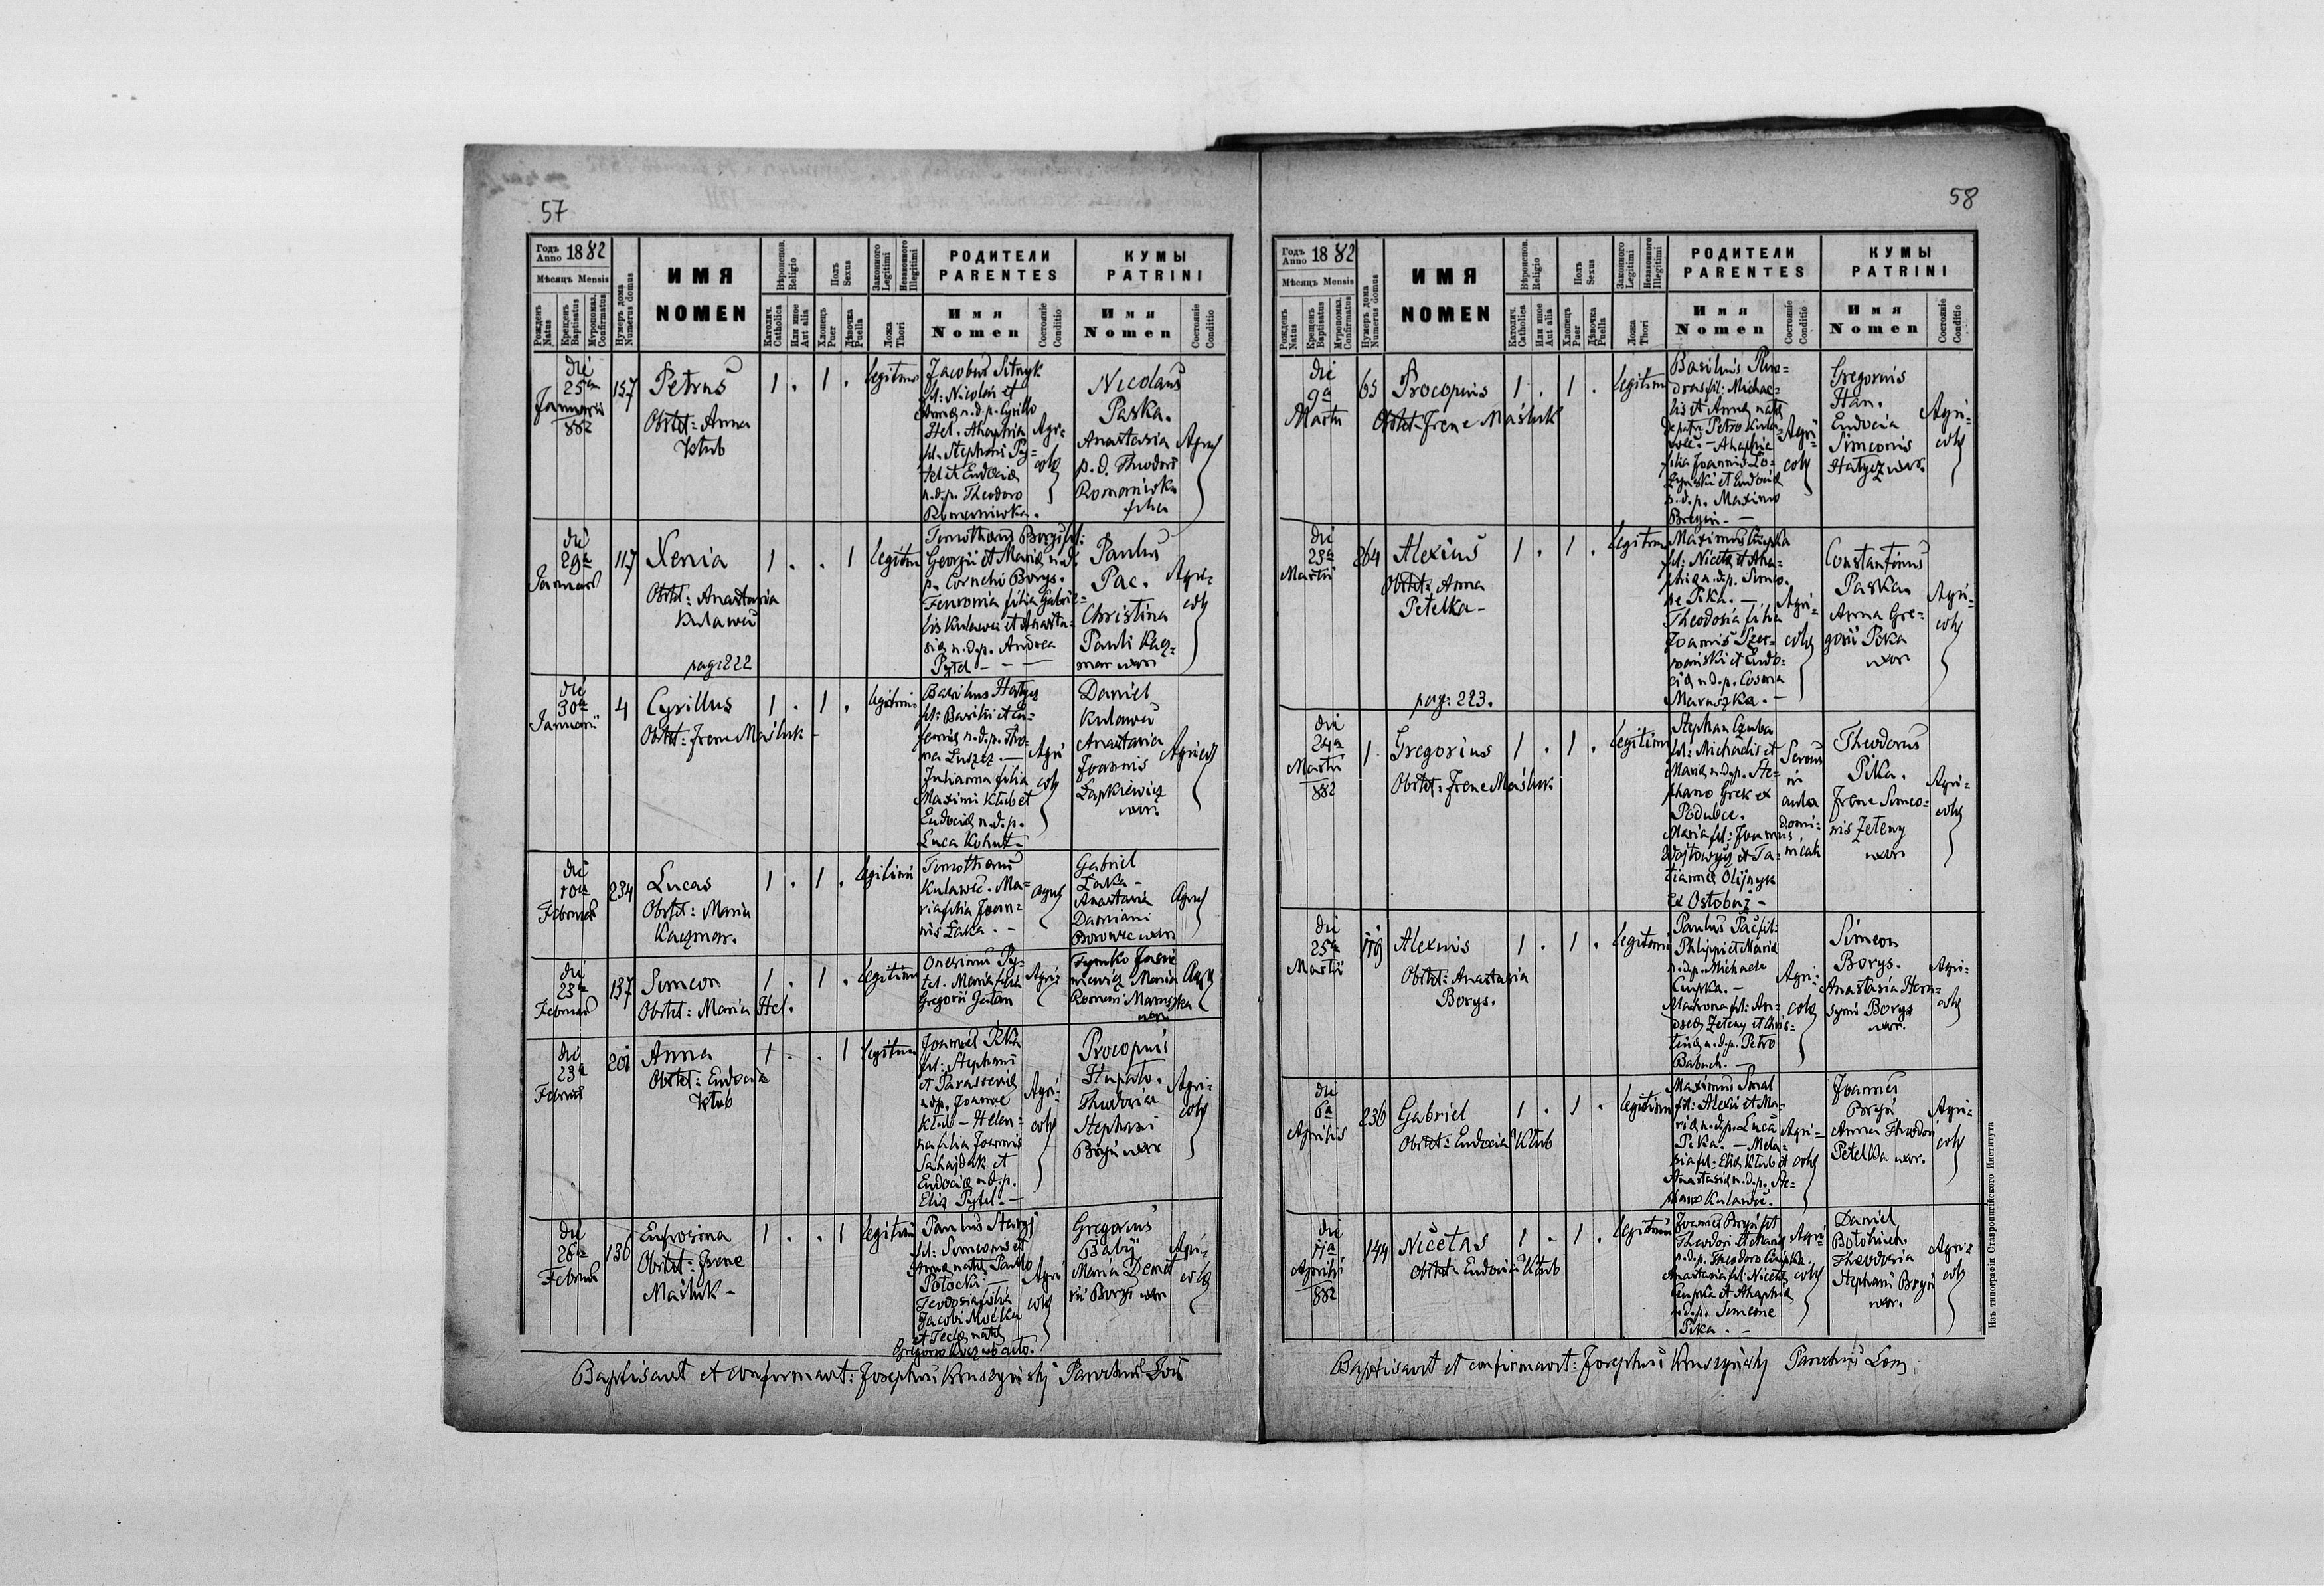 57
Годъ Anno 1882
Мѣсяцъ Mensis
Рожденъ Natus
Крещенъ Baptisatus
Муропомаз. Confirmatus
Нумеръ дома Numerus domus
ИМЯ
NOMEN
Вѣроиспов. Religio
Католич. Catholica
Или иное Aut alia
Полъ Sexus
Хлопецъ Puer
Дѣвочка Puella
Законного Legitimi
Незаконного Illegitimi
Ложа Thori
РОДИТЕЛИ
PARENTES
Имя
Nomen
Состояніе Conditio
КУМЫ
PATRINI
Имя
Nomen
Состояніе Conditio
die
25
Januarii
882
157
Petrus
Obstet: Anna
Kłub
1 . 1 .
legitimi
Jacobus
fil: Nicolai et
Annæ n. d. p. Cyrillo
Hel. Ahaphia
fil. Stephani Py=
tel et Eudociæ
n. d. p. Theodoro
Romaniwka.
Agri=
colæ
Nicolaus
Paska.
Anastasia
p. d. Theodori
Romaniwka
filia
die
29a
117
Xenia
Obstet: Anastasia
Kulawec
pag: 222
1 . . 1
legitimi
Timotheus Borys fil:
Georgii et Mariæ n. d.
p. Cornelio Borys.
Fewronia filia Gabrie=
lis Kulawec et Anasta=
siæ n. d. p. Andrea
Pytel - - -
Paulus
Pac.
Christina
Pauli Kacz=
mar uxor
Agri=
colæ
die
30a
Januarii
4
Cyrillus
Obstet: Irene Maśluk -
1 . 1 .
legitimi
Basilius Hałycz
fil: Basilii et Eu=
femiæ n. d. p. Tho=
ma
Julianna filia
Maximi Kłub et
Eudociæ n. d. p.
Luca Kohut -
Agri
colæ
Daniel
Kulawec
Anastasia
Joannis
Łapkiewicz
uxor.
Agricolæ
die
10a
234
Lucas
Obstet: Maria
Kaczmar.
1 . 1 .
legitimi
Timotheus
Kulawec. Ma=
ria filia Joan=
nis Łaka. -
Gabriel
Łaka -
Anastasia
Damiani
uxor
die
23a
137
Simeon
Obstet: Maria Hel.
1 . 1 .
legitimi
Onesimus Py=
tel. Maria filia
Gregorii
Maria
Romani Maruszka
uxor
die
23a
Anna
Obstet: Eudocia
Kłub
1 . . 1
legitimi
Joannes Pika
fil: Stephani
et Parasceviæ
n. d. p. Joanne
Kłub - Helen=
na filia Joannis
Sahajdak et
Eudociæ n. d. p.
Elia Pytel. -
Agri=
colæ
Procopius
Theodosia
Stephani
uxor
Agri=
colæ
die
26a
136
Eufrosina
Obstet: Irene
Maśluk -
1 . . 1
legitimi
Paulus
fil: Simeonis et
Annæ natæ Paulo
Potocki -
Teodosia filia
Jacobi
et Teclæ natæ
Gregorio
Agri
colæ
Gregorius
Babij
Maria Demet
rii Borys uxor
Agri=
colæ
Baptisavit et confirmavit: Josephus Kruszyński Parochus Loci
58
Годъ Anno 1882
Мѣсяцъ Mensis
Рожденъ Natus
Крещенъ Baptisatus
Муропомаз. Confirmatus
Нумеръ дома Numerus domus
ИМЯ
NOMEN
Вѣроиспов. Religio
Католич. Catholica
Или иное Aut alia
Полъ Sexus
Хлопецъ Puer
Дѣвочка Puella
Законного Legitimi
Незаконного Illegitimi
Ложа Thori
РОДИТЕЛИ
PARENTES
Имя
Nomen
Состояніе Conditio
КУМЫ
PATRINI
Имя
Nomen
Состояніе Conditio
die
9a
Martii
65
Procopius
Obstet: Irene Maśluk
1 . 1 .
legitimi
Basilius
fil: Michae=
lis et Annæ natæ
de patre Petro
Ahaphia
filia Joannis
et Eudociæ
n. d. p. Maximo
Agri=
colæ
Gregorius
Eudocia
Simeonis
Hałycz uxor.
Agri=
colæ
die
Martii
264
Alexius
Obstet: Anna
Petelka -
pag: 223.
1 . 1 .
legitimi
Maximus Ciupka
fil: Nicetæ et Aha=
phiæ n. d. p. Simeo=
ne Pika. -
Theodosia filia
Joannis
et Eudo=
ciæ n. d. p. Cosma
Maruszka. -
Agri=
colæ
Constantinus
Paska.
Anna Gre=
gorii Pika
uxor
Agri=
colæ
die
24a
Martii
882
1.
Gregorius
Obstet: Irene Maśluk
1 . 1 .
legitimi
Stephan Czuba
fil: Michaelis et
Mariæ n. d. p. Ste=
phano Grek ex
Maria fil: Joannis
Wojtowycz et Ta=
tiannæ Olijnyk
ex Ostobuz -
in
aula
domi=
nicali
Theodorus
Pika.
Irene Simeo=
nis Zeleny
uxor
Agri=
colæ
die
25a
Martii
Alexius
Obstet: Anastasia
Borys.
1 . 1 .
legitimi
Paulus Pac fil:
Philippi et Mariæ
n. d. p. Michaele
Ciupka. -
Matrona fil: An=
dreæ Zeleny et Chris=
tinæ n. d. p. Petro
Babuch. -
Agri=
colæ
Simeon
Borys.
Anastasia
Borys
uxor.
Agri=
colæ
die
6a
Aprilis
236
Gabriel
Obstet: Eudocia Kłub
1 . 1 .
legitimi
Maximus
fil: Alexii et Ma=
riæ n. d. p. Luca
Pika. - Mela=
nia fil: Eliæ Kłub et
Anastasiæ n. d. p. Ste=
phano Kulawec.
Agri=
colæ
Joannes
Anna Theodori
Petelka uxor.
Agri=
colæ
die
11a
Aprilis
882
144
Nicetas
Obstet: Eudocia Kłub
1 . 1 .
legitimi
Joannes
Theodori et Mariæ
n. d. p. Theodoro Ciupka
Anastasia fil: Nicetæ
Ciupka et Ahaphiæ
n. d. p. Simeone
Pika. -
Agri=
colæ
Daniel
Theodosia
Stephani
uxor.
Agri=
colæ
Baptisavit et confirmavit: Josephus Kruszyński Parochus Loci
Изъ типографіи Ставропигійского Института